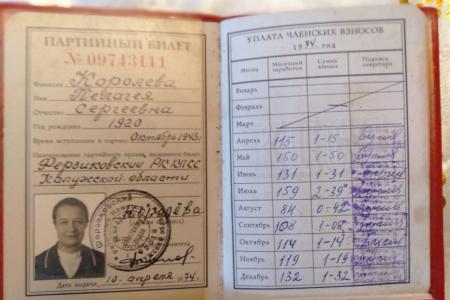 ПАРТИЙНЫЙ БИЛЕТ
№ 09743111
Фамилия Королева
Имя Пелагея
Отчество Сергеевна
Год рождения 1920
Время вступления в партию Октябрь 1943 г.
Наименование партийного органа, выдавшего билет
Ферзиковский РК КПСС
Калужской области
Дата выдачи 10 апреля 1974 г.
УПЛАТА ЧЛЕНСКИХ ВЗНОСОВ
1974 год
Месяц Месячный заработок Сумма взноса Подпись секретаря
Январь
Февраль
Март
Апрель 115 1-15
Май 150 1-50
Июнь 131 1-31
Июль 159 2-39
Август 84 0-42
Сентябрь 108 1-08
Октябрь 114 1-14
Ноябрь 119 1-19
Декабрь 132 1-32